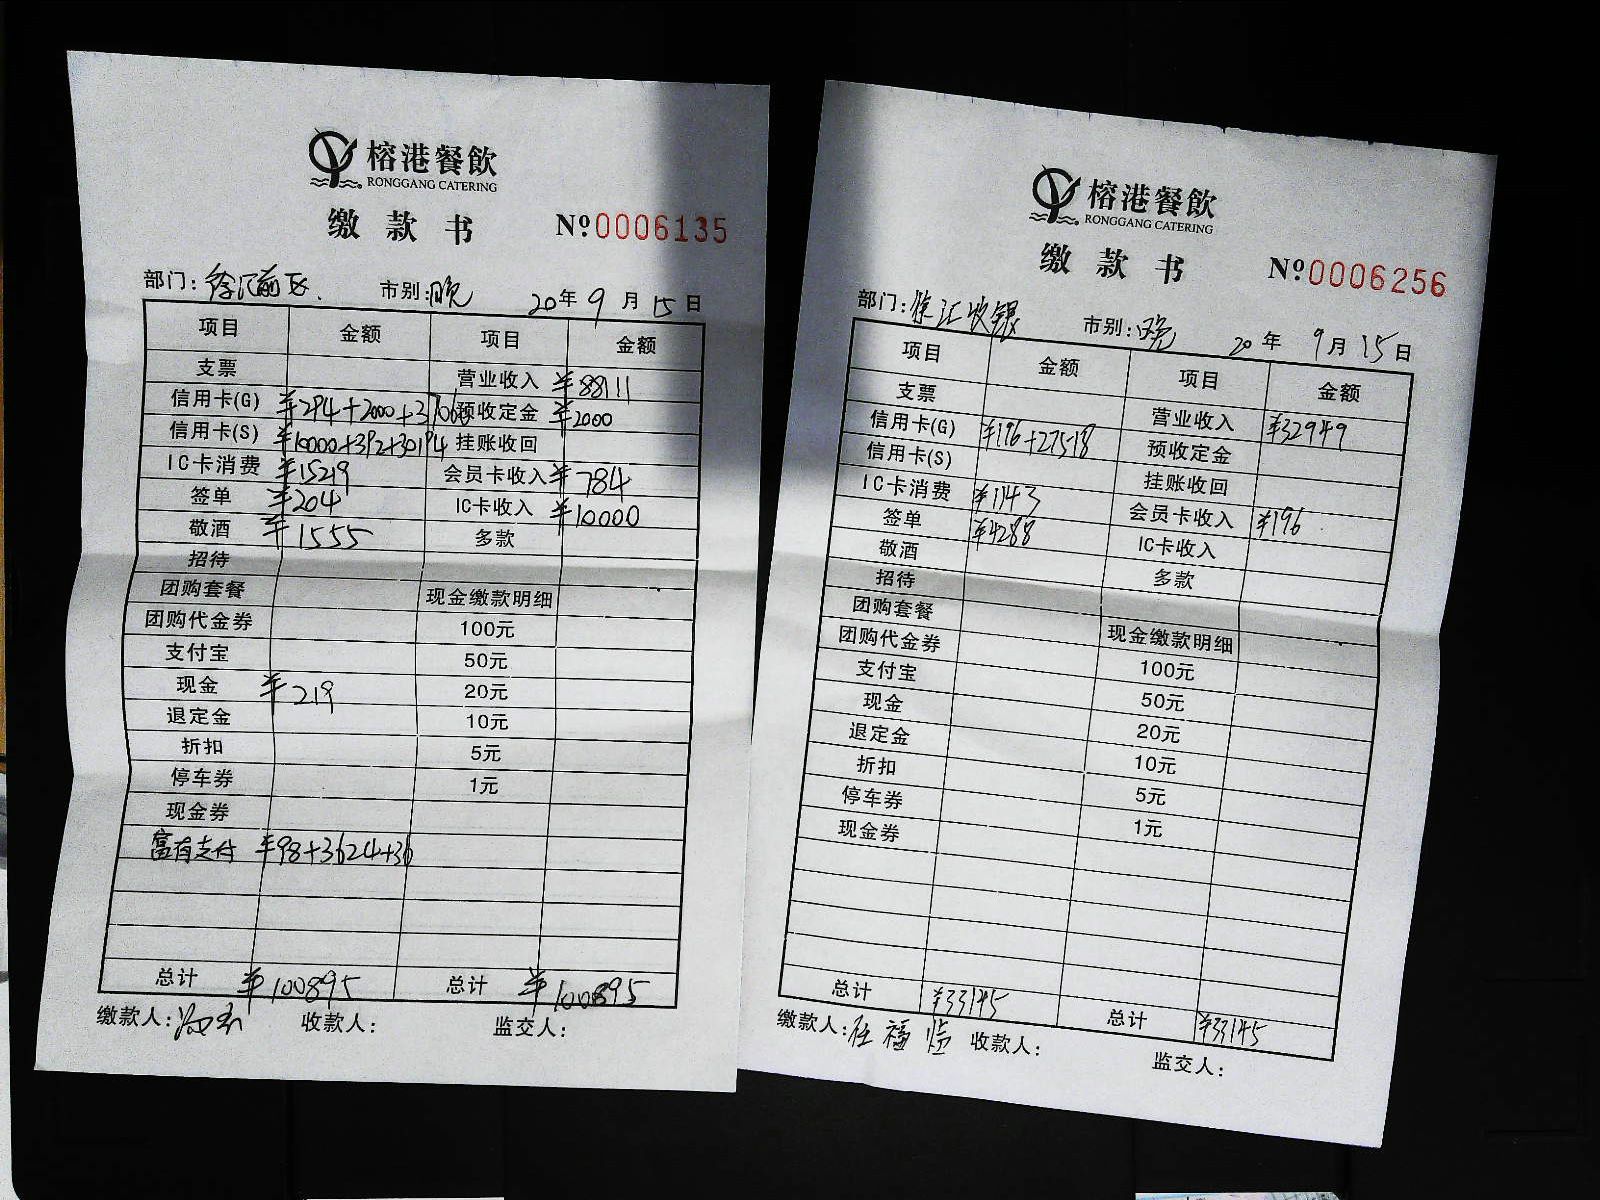 榕港餐飲
RONGGANG CATERING
缴款书 Nº0006135
部门: 徐汇前区. 市别: 晚 20年9月15日
项目 金额 项目 金额
支票 营业收入 ¥88111
信用卡(G) ¥294+2000+37060 预收定金 ¥2000
信用卡(S) ¥10000+392+30194 挂账收回
IC卡消费 ¥15219 会员卡收入 ¥784
签单 ¥204 IC卡收入 ¥10000
敬酒 ¥1555 多款
招待
团购套餐 现金缴款明细
团购代金券 100元
支付宝 50元
现金 ¥219 20元
退定金 10元
折扣 5元
停车券 1元
现金券
富有支付 ¥98+3624+36
总计 ¥100895 总计 ¥100895
缴款人: 收款人: 监交人:
榕港餐飲
RONGGANG CATERING
缴款书 Nº0006256
部门: 徐汇收银 市别: 晚 20年9月15日
项目 金额 项目 金额
支票 营业收入 ¥32949
信用卡(G) ¥196+27518 预收定金
信用卡(S) 挂账收回
IC卡消费 ¥1143 会员卡收入 ¥196
签单 ¥4288 IC卡收入
敬酒 多款
招待
团购套餐 现金缴款明细
团购代金券 100元
支付宝 50元
现金 20元
退定金 10元
折扣 5元
停车券 1元
现金券
总计 ¥33145 总计 ¥33145
缴款人: 任福 收款人: 监交人: